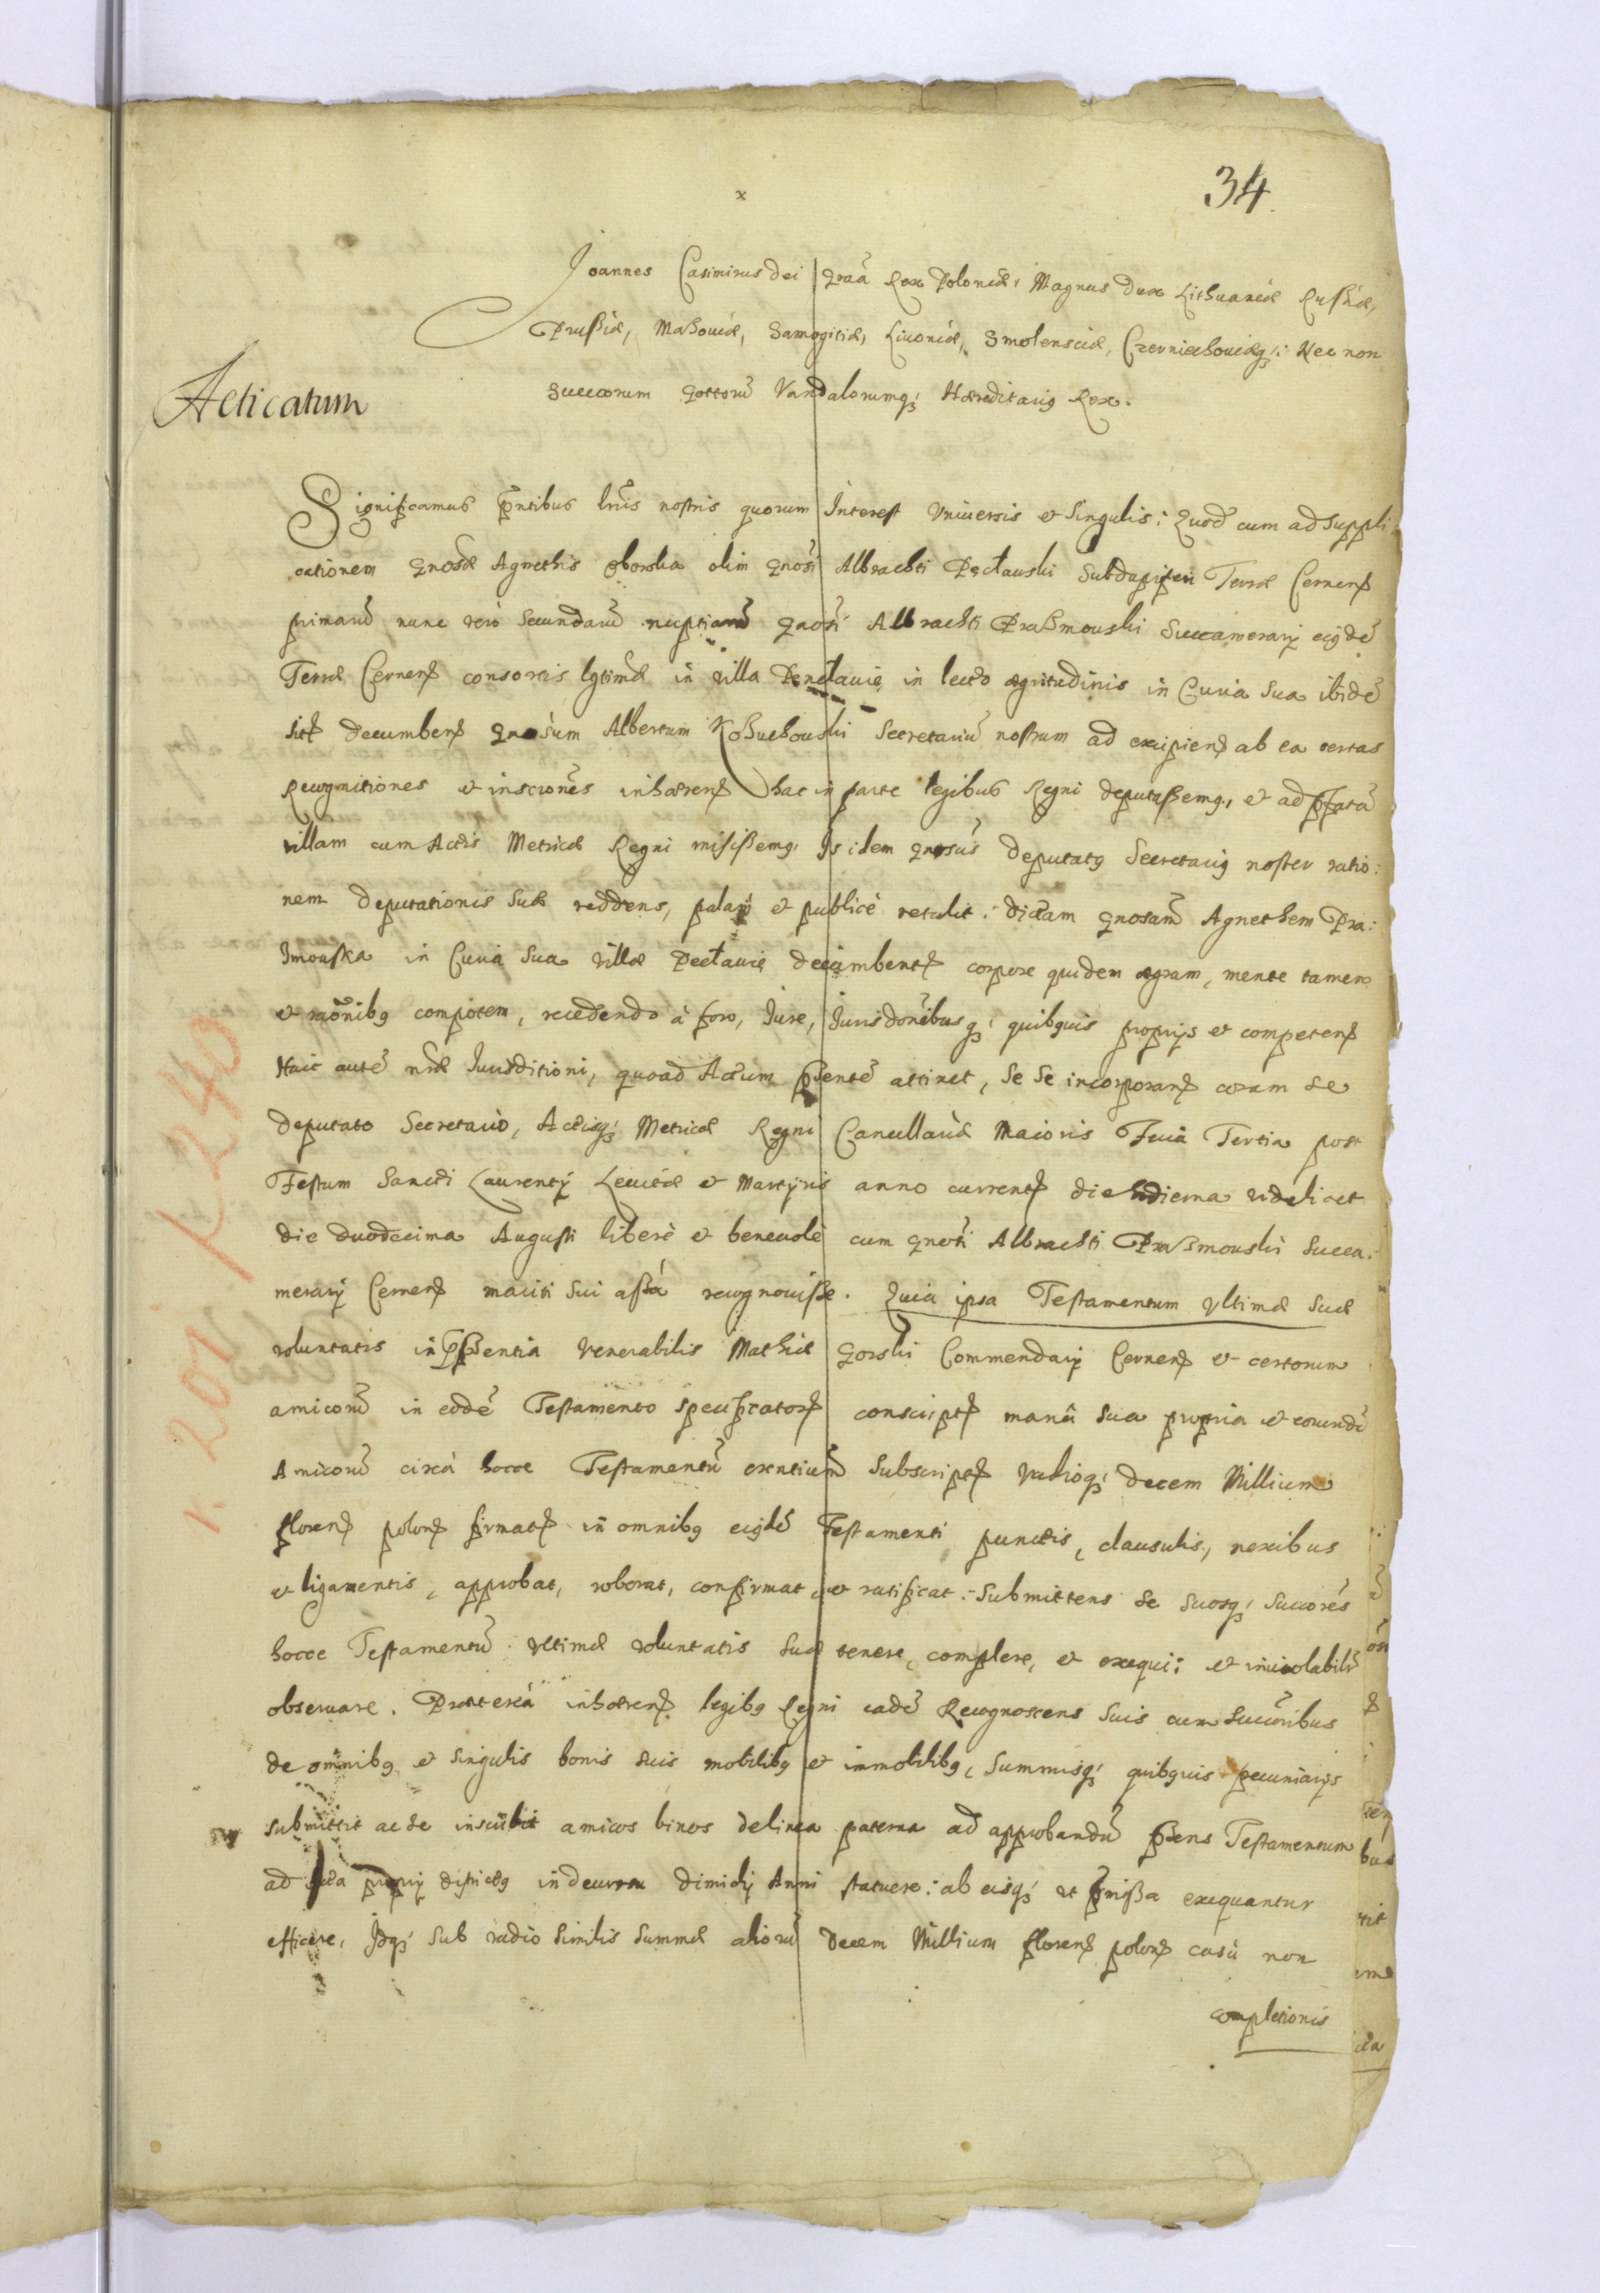 34
x
Joannes Casimirus Dei graã Rex Poloniæ, Magnus Dux Lithuaniæ Russiæ,
Prussiæ, Masoviæ, Samogitiæ, Livoniæ, Smolensciæ, Czerniechoviæq; Nec non
Suecorum Gottorũ Vandalorumq; Hæreditariq Rex.
Acticatum
Significamus pñtibus lrñis nostris quorum Interest Vniuersis et Singulis: Quod cum ad suppli:
cationem Gnosæ Agnethis Oborska olim Gnosi Albrachti Pęcławski Subdapiferi Terræ Cernen
primarũ nunc verò Secundarũ nuptiarũ Gnosi Albrachti Praßmouski Succamerarÿ eiqdẽ
Terræ Cernen consortis lgtimæ in villa Penclauie in lecto ægritudinis in Curia Sua ibidẽ
sit decumben Gnosum Albertum Kossuchouski Secretariũ nostrum ad excipien ab ea certas
Recognitiones et inscriões inhæren hac in parte legibus Regni deputassemq, et ad pfatã
villam cum Actis Metricæ Regni misissemq. Is idem Gnosus deputatq Secretariq noster ratio:
nem deputationis suæ reddens, palam et publicè retulit: dictam Gnosam Agnethem Pra:
smouska in Curia Sua villæ Pecłauie decumbent corpore quidem ægram, mente tamen
et raõnibq compotem, recedendo à foro, Iure, Iurisdõnibusq; quibquis proprijs et competen
Huic autẽ nræ Iurisditioni, quoad Actum psentẽ attinet, se se incorporan coram de
deputato Secretario, Actisq; Metricæ Regni Cancellariæ Maioris Feria Tertia post
Festum Sancti Laurentÿ Leuitæ et Martÿris anno current die hodierna videlicet
die duodecima Augusti liberè et beneuolè cum Gnosi Albrachti Praßmouski Succa:
merarÿ Cernen mariti Sui assã recognouisse. Quia ipsa Testamentum Vltimæ Suæ
voluntatis in psentia Venerabilis Mathiæ Gorski Commendarÿ Cernen et certorum
amicorũ in eodẽ Testamento specificator conscript manu Sua propria et eorundẽ
Amicorũ circà hocce Testamentũ exñtium Subscript Vadioq; decem Millium
floren polon firmat in omnibq eiqdẽ Testamenti punctis, clausulis, nexibus
et ligamentis, approbat, roborat, confirmat, et ratificat: Submittens se Suosq; Succores
hocce Testamentũ Vltimæ voluntatis Suæ tenere, complere, et exequi: et inuiolabilr
obseruare. Prætereà inhæren legibq Regni eadẽ Recognoscens Suis cum Succoribus
de omnibq et Singulis bonis Suis mobilibq et immobilibq, Summisq; quibquis pecuniarijs
submittit ac se inscribit amicos binos de linea paterna ad approbandũ psens Testamentum
ad Acta proprÿ districtq in decursu dimidÿ Anni statuere: ab eisq; ut pmissa exequantur
efficere, Idq; sub vadio similis Summæ aliorũ Decem Millium floren polon casu non
completionis